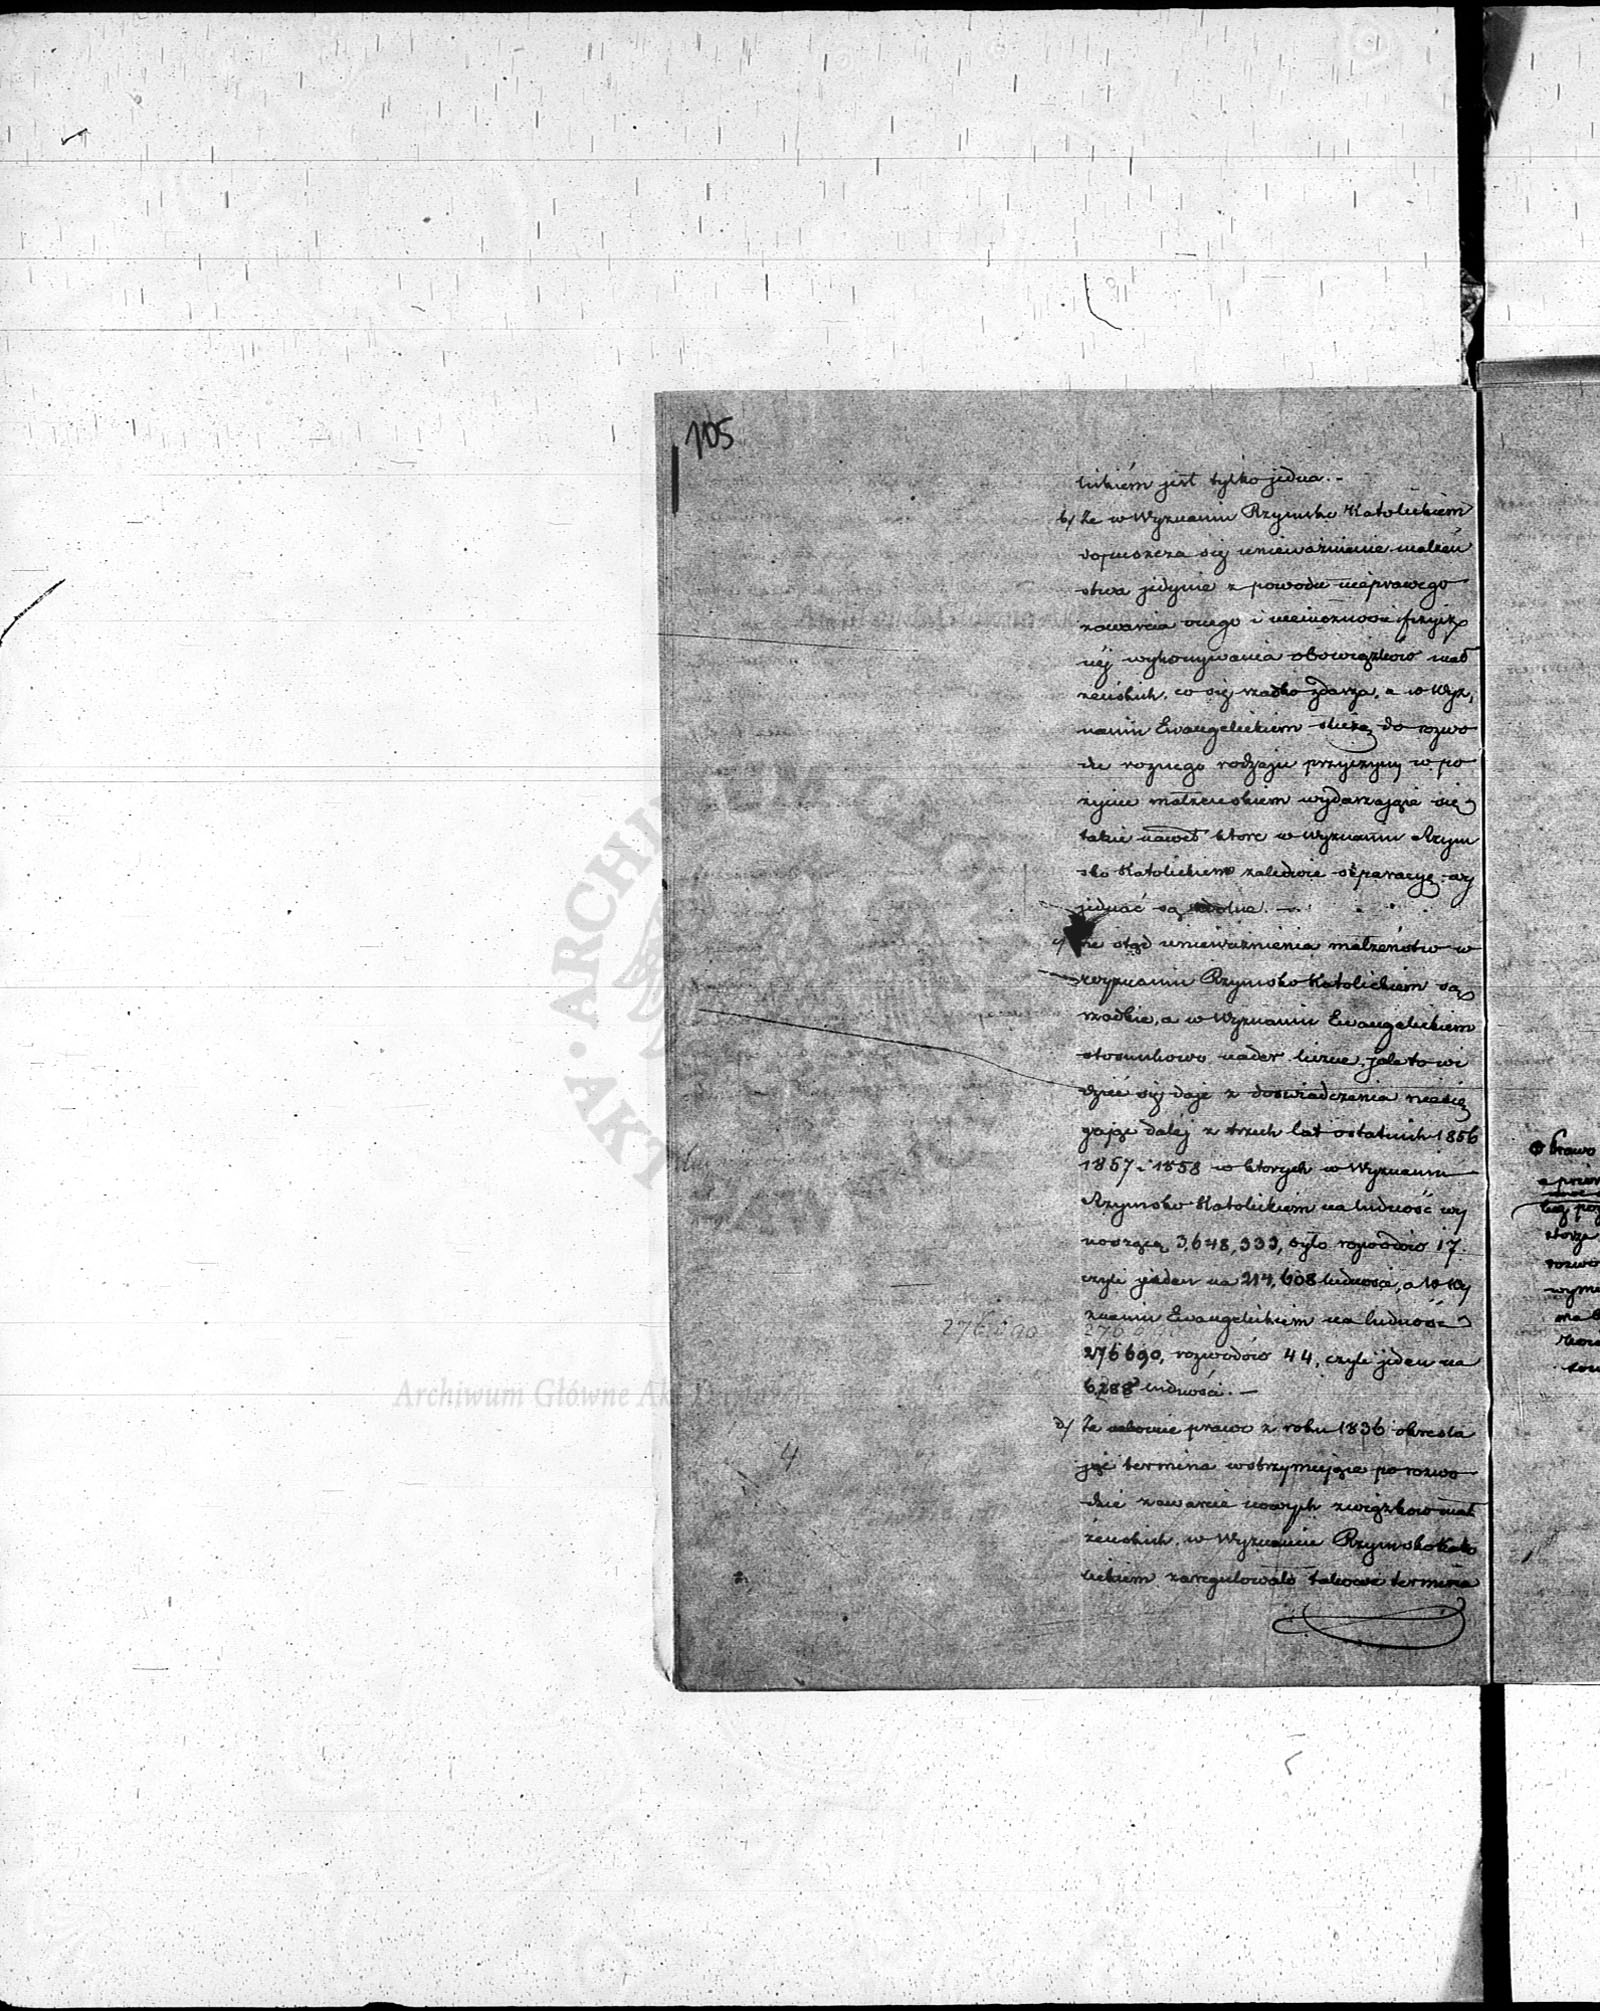 105
lickiém jest tylko jedna.-
b/ Że w Wyznaniu Rzymsko Katolickiem
dopuszcza się unieważnienie małżeń
stwa jedynie z powodu nieprawego
zawarcia onego i niemożności fizycz
néj wykonywania obowiązków mał
żeńskich, co się rzadko zdarza, a w Wyz,
naniu Ewangelickiem służą do rozwo
du roznego rodzaju przyczyny w po
życiu małżeńskiem wydarzające się
takie nawet które w Wyznaniu Rzym
sko Katolickiem zaledwie separacyę zy
jednać są zdolne. —
c/ że ztąd unieważnienia małżeństw w
wyznaniu Rzymsko Katolickiem są
rzadkie, a w Wyznaniu Ewangelickiem
stosunkowo nader liczne, jak to wi
dzieć się daje z doświadczenia niesię
gając dalej z trzech lat ostatnich 1856
1857 i 1858 w ktorych w Wyznaniu
Rzymsko Katolickiem na ludność wy
noszącą 3,648,333, było rozwodów 17.
czyli jeden na 214,608 ludności, a w Wy
znaniu Ewangelickiem na ludność
276.690 276.690
276690, rozwodów 44, czyli jeden na
6,288 ludności. —
d/ Że prawo z roku 1836 okresla
4
jąc termina wstrzymujące po rozwo
dzie zawarcie nowych związkow mał
żeńskich, w Wyznaniu Rzymsko Kato
lickiem zaregulowało takowe termina
Prawo
ARCHIWUM GŁÓWNE AKT DAWNYCH
Archiwum Główne Akt Dawnych